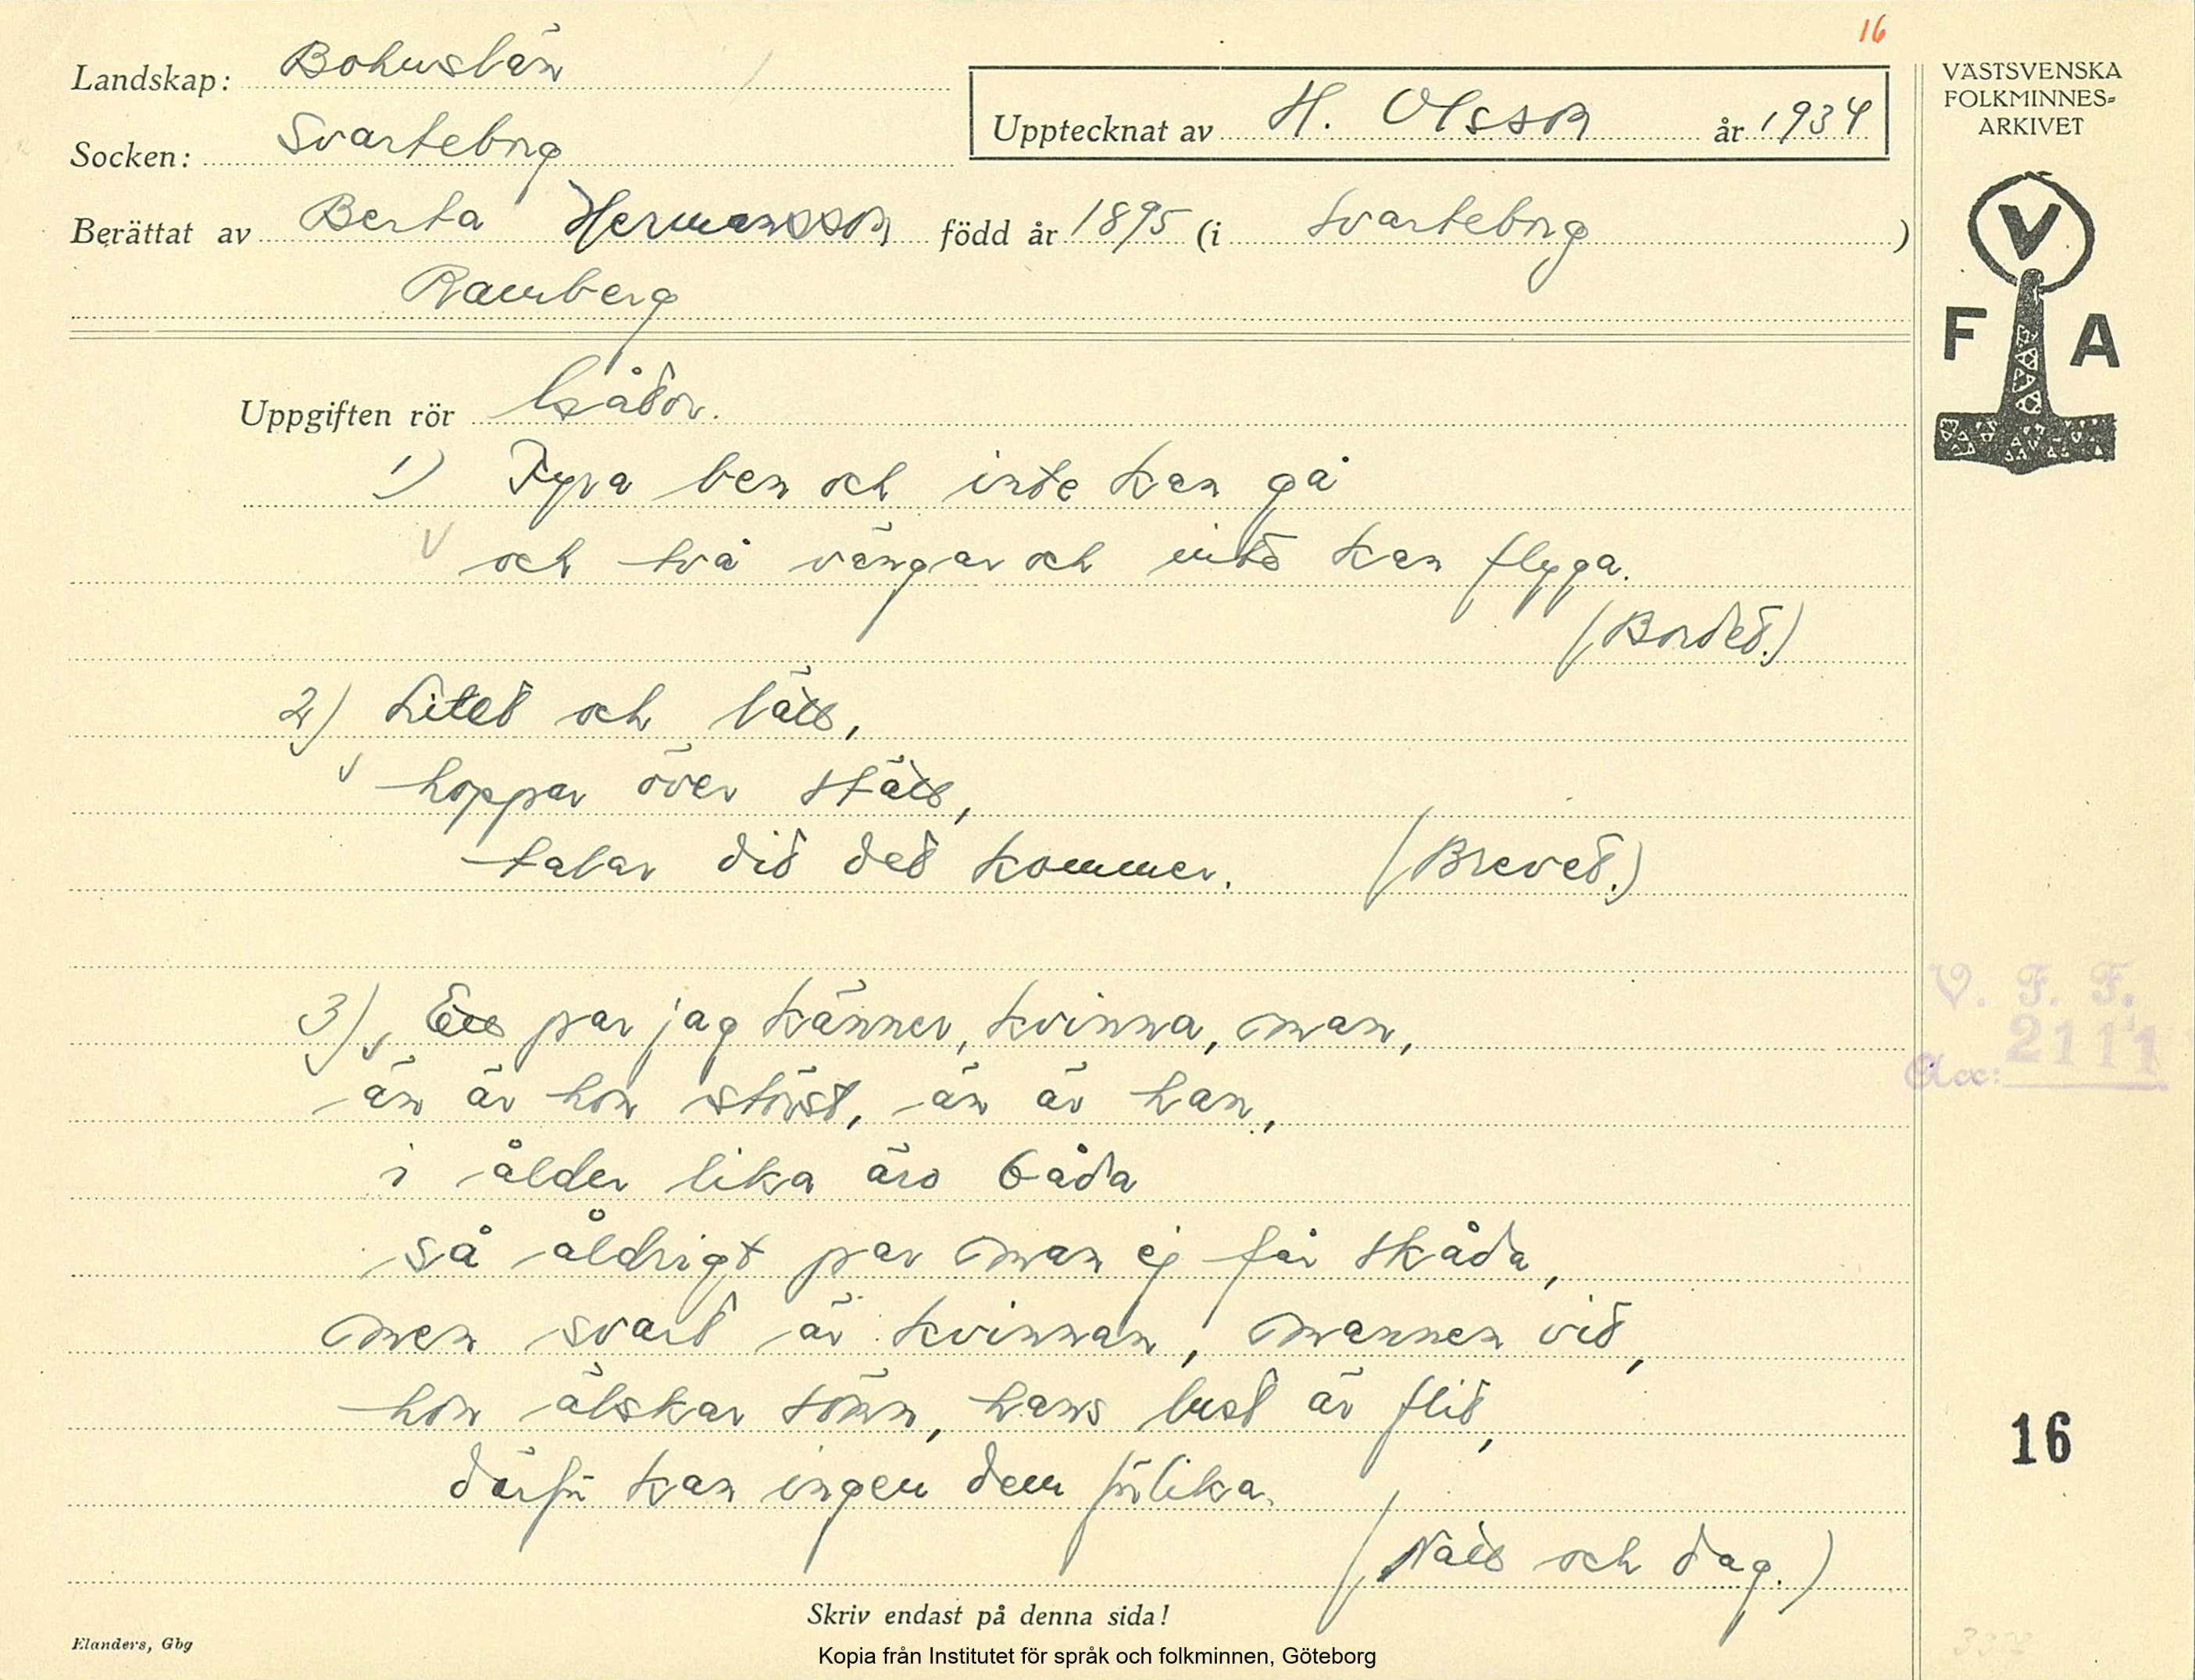 16
Landskap: Bohuslän
Socken: Svarteborg
Upptecknat av H. Olsson år 1934
Berättat av Berta Hermansson född år 1895 (i Svarteborg)
Ramberg
VÄSTSVENSKA
FOLKMINNES=
ARKIVET
V
F A
Uppgiften rör Gåtor.
1) Fyra ben och inte kan gå
och två vängar och inte kan flyga.
(Bordet.)
2) Litet och lätt,
hoppar över stätt,
talar dit det kommer. (Brevet.)
3) Ett par jag känner, kvinna, man,
än är hon störst, än är han,
i ålder lika äro båda
så åldrigt par man ej får skåda,
men svart är kvinnan, mannen vit,
hon älskar sömn, hans lust är flit,
därför kan ingen dem förlika.
(Natt och dag.)
V. F. F.
Acc: 2111
16
Skriv endast på denna sida!
Elanders, Gbg
Kopia från Institutet för språk och folkminnen, Göteborg